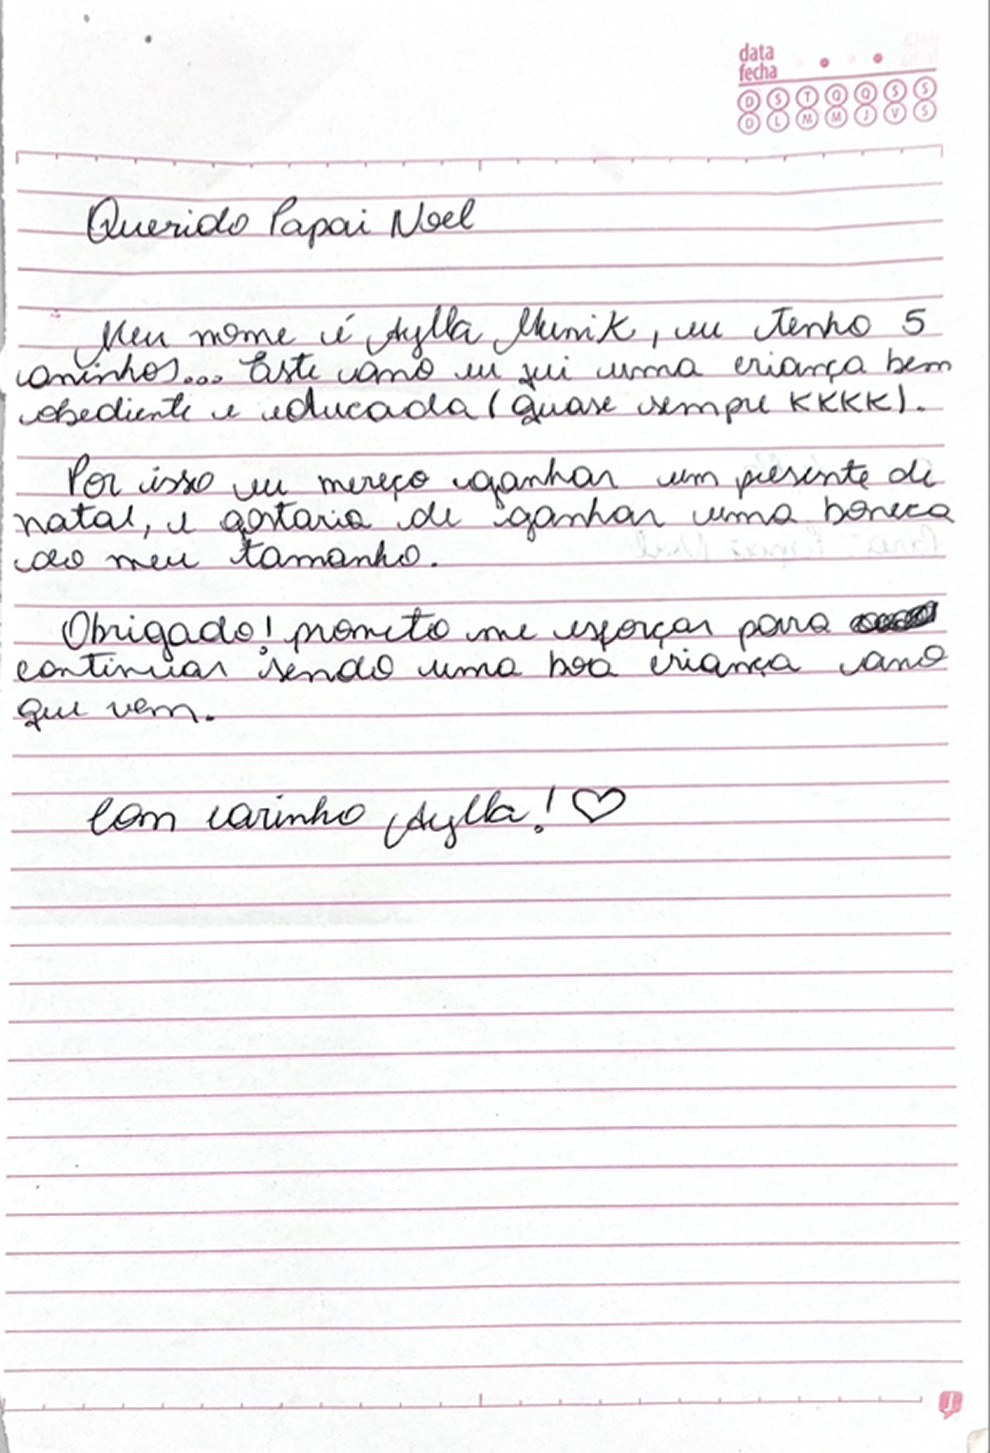 data
fecha
D S T Q Q S S
D L M M J V S
Querido Papai Noel
Meu nome é Aylla Munik, eu tenho 5
aninhos... Este ano eu fui uma criança bem
obediente e educada (quase sempre KKKK).
Por isso eu mereço ganhar um presente de
natal, e gostaria de ganhar uma boneca
do meu tamanho.
Obrigado! prometo me esforçar para
continuar sendo uma boa criança ano
que vem.
Com carinho Aylla! ♡